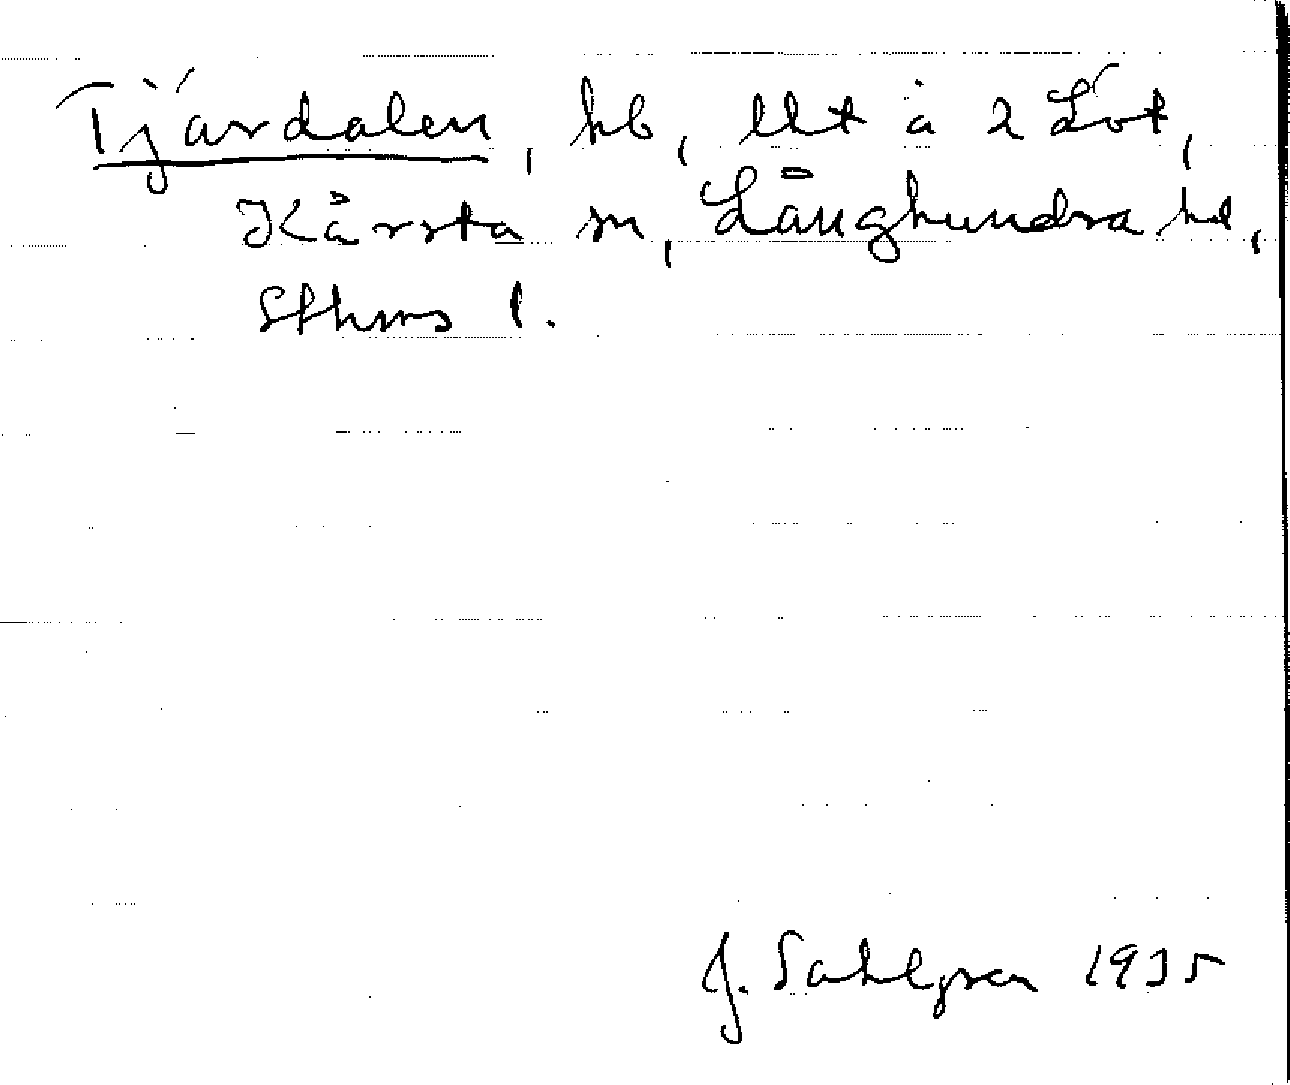 Tjärdalen, hb, Ut å 2 Löt,
Kårsta sn, Långhundra hd,
Sthms l.
J. Sahlgren 1935